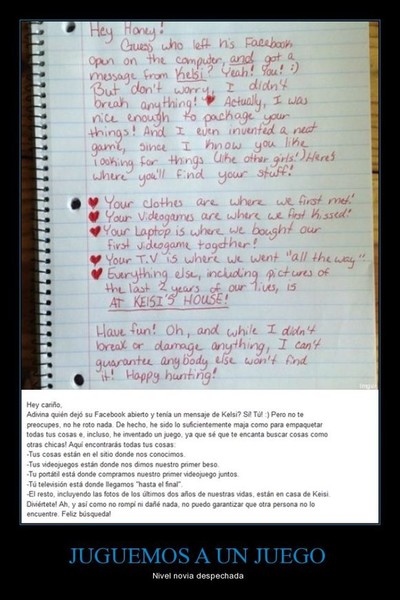 Hey Honey!
Guess who left his Facebook
open on the computer, and got a
message from Kelsi? Yeah! You! :)
But don't worry, I didn't
break anything! ♥ Actually, I was
nice enough to package your
things! And I even invented a neat
game, since I know you like
looking for things (like other girls!) Here's
where you'll find your stuff!
♥ Your clothes are where we first met!
♥ Your Videogames are where we first kissed!
♥ Your Laptop is where we bought our
first videogame together!
♥ Your T.V is where we went "all the way"
♥ Everything else, including pictures of
the last 2 years of our lives, is
AT KEISI'S HOUSE!
Have fun! Oh, and while I didn't
break or damage anything, I can't
guarantee anybody else won't find
it! Happy hunting!
Hey cariño,
Adivina quién dejó su Facebook abierto y tenía un mensaje de Kelsi? Sí! Tú! :) Pero no te
preocupes, no he roto nada. De hecho, he sido lo suficientemente maja como para empaquetar
todas tus cosas e, incluso, he inventado un juego, ya que sé que te encanta buscar cosas como
otras chicas! Aquí encontrarás todas tus cosas:
-Tus cosas están en el sitio donde nos conocimos.
-Tus videojuegos están donde nos dimos nuestro primer beso.
-Tu portátil está donde compramos nuestro primer videojuego juntos.
-Tú televisión está donde llegamos "hasta el final".
-El resto, incluyendo las fotos de los últimos dos años de nuestras vidas, están en casa de Keisi.
Diviértete! Ah, y así como no rompí ni dañé nada, no puedo garantizar que otra persona no lo
encuentre. Feliz búsqueda!
JUGUEMOS A UN JUEGO
Nivel novia despechada